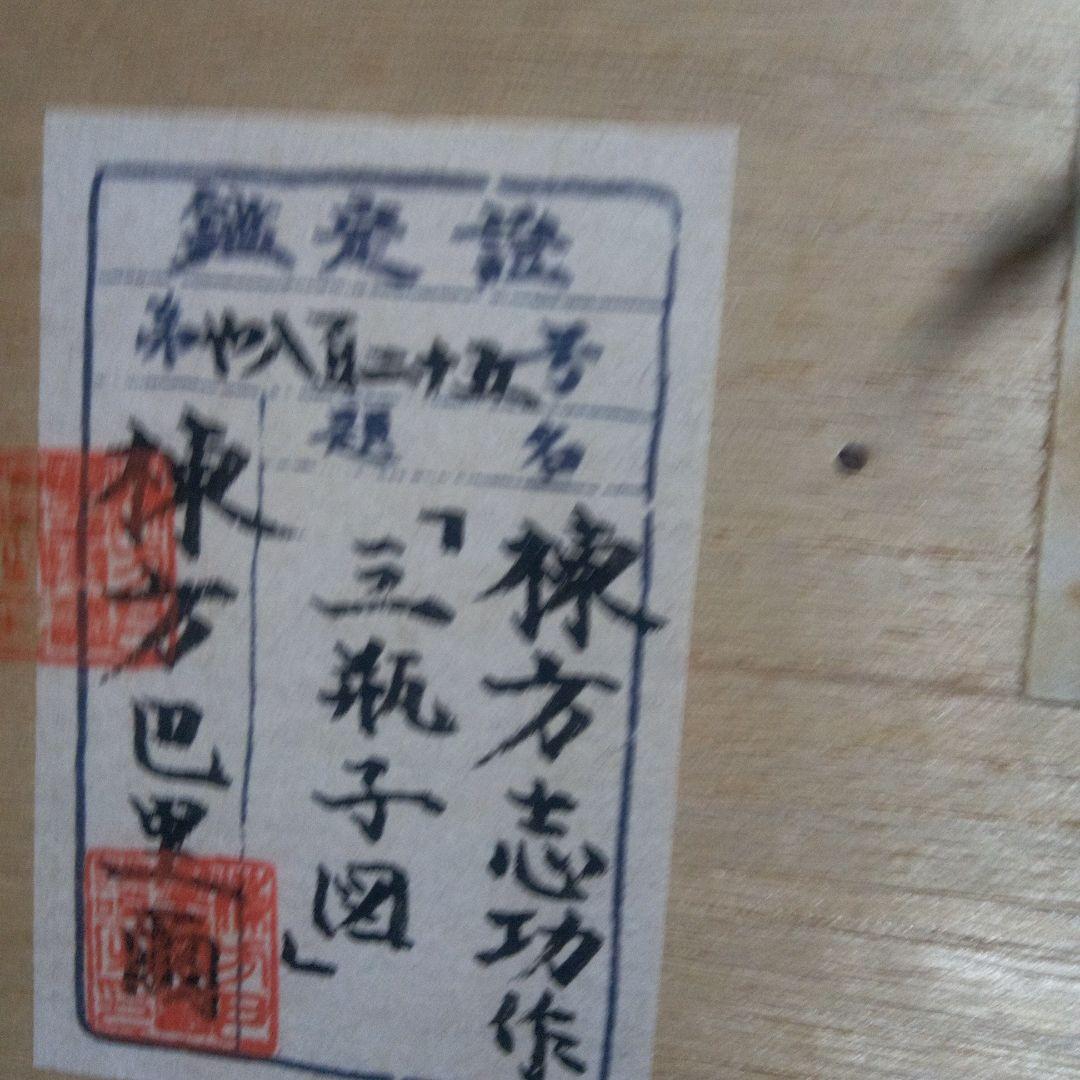 鑑定證
第七八百二十五号
題名
棟方志功作
「三瓶子図」
棟方巴里爾